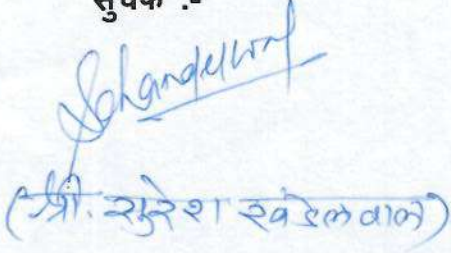 सुचक :-
Skhandelwal
(श्री. सुरेश खंडेलवाल)